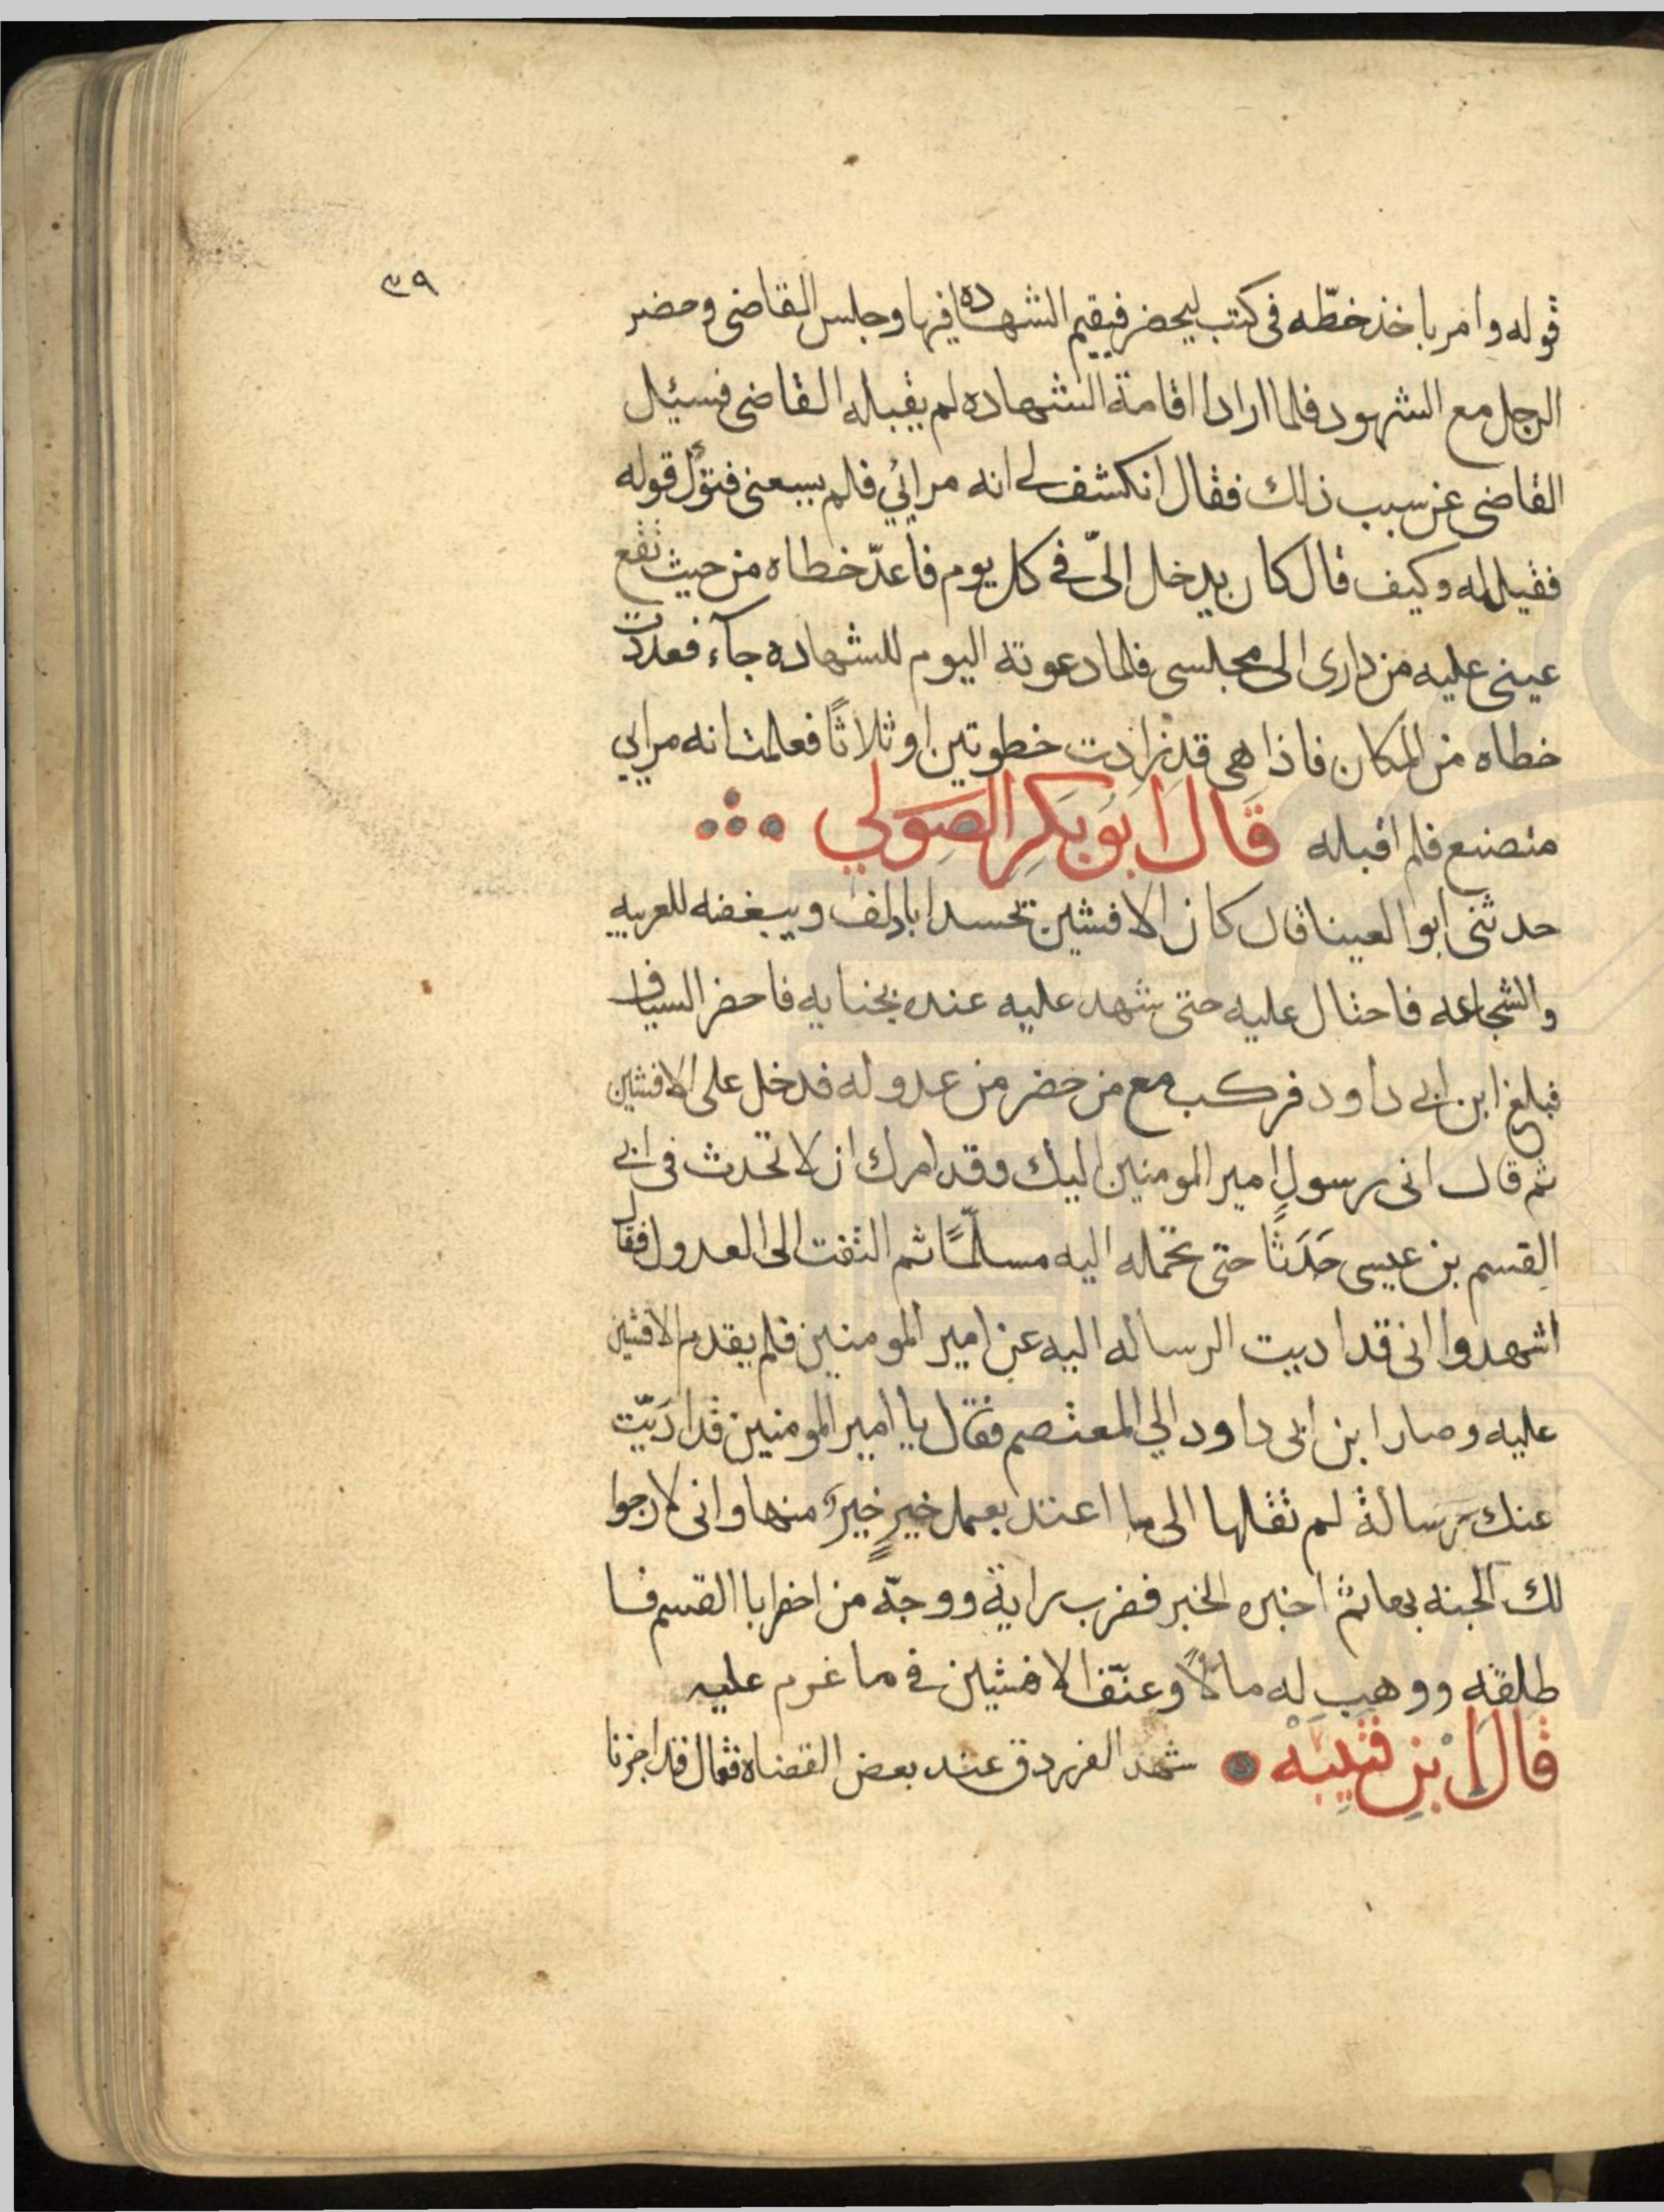 ٣٩
قوله وامر باخذ خطّه فى كتب ليحضر فيقيم الشهاده فيها وجلس القاضى وحضر
الرجل مع الشهود فلما ارادا اقامة الشهاده لم يقبله القاضى فسئيل
القاضى عن سبب ذلك فقال انكشف لى انه مرائي فلم يسعنى قوله
فقيل له وكيف قال كان يدخل الىّ فى كل يوم فاعدّ خطاه من حيث تقع
عينى عليه من دارى الى مجلسى فلما دعوته اليوم للشهاده جآء فعددت
خطاه من المكان فاذا هى قد زادت خطوتين او ثلاثًا فعلمت انه مرايي
متصنع فلم اقبله قَال ابَوبَكِر الصَولي
حدثنى ابو العينا قال كان الافشين تحسد ابا دلف ويبغضه للعربيه
والشجاعه فاحتال عليه حتى شهد عليه عنده بجنايه فاحضر السياف
فبلغ ابن ابى داود فركب مع من حضر من عدوله فدخل على الافشين
ثم قال انى رسول امير المومنين اليك وقد امرك ان لا تحدث فى ابى
القسم بن عيسى حَدَثًا حتى تحمله اليه مسلّمًا ثم التفت الى العدول فقال
اشهدوا انى قد اديت الرساله اليه عن امير المومنين فلم يقدم الافشين
عليه وصار ابن ابى داود الي المعتصم فقال يا امير المومنين قد ادَيّت
عنك رسالة لم تقلها الى ما اعتد بعمل خيرٍ خيرً منها وانى لارجوا
لك الجنه بها ثم اخبره الخبر فضرب راية ووجّه من احضر ابا القسم فا
طلقه ووهب له مالاً وعنّف الافشين فى ما عزم عليه
قَال ابن قتيبه شهد الفرزدق عند بعض القضاه فقال قد اجزنا